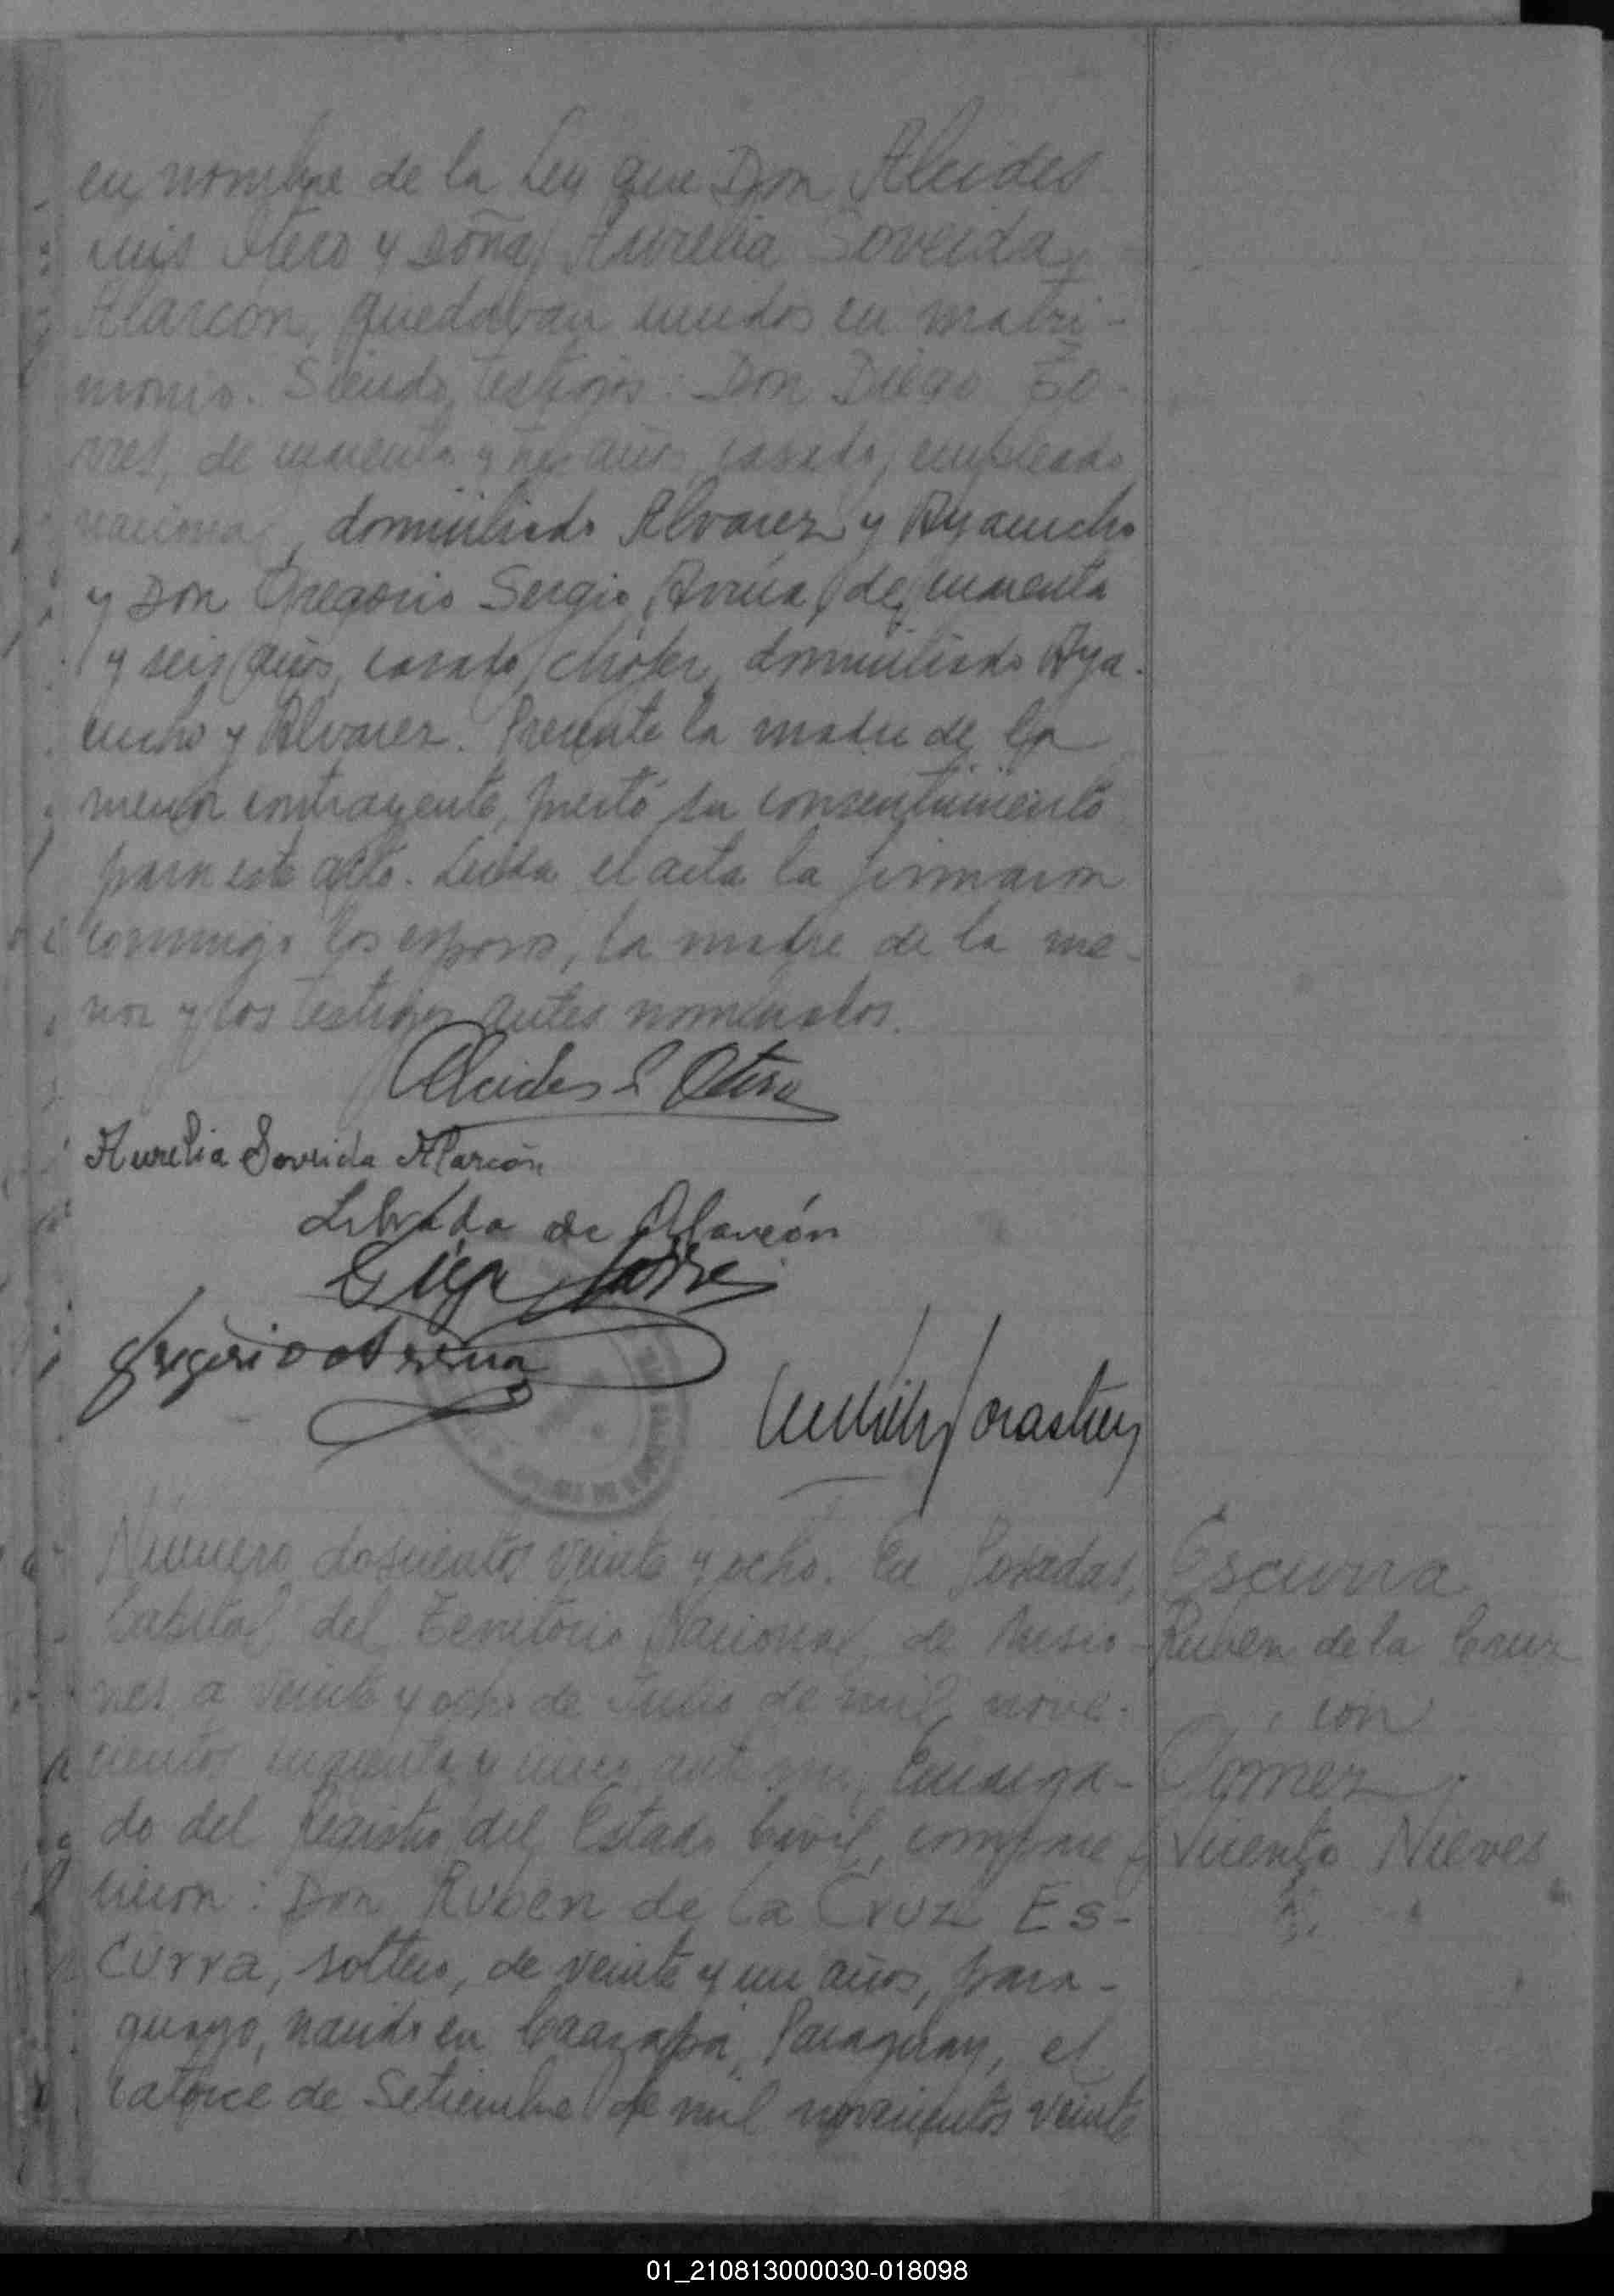 en nombre de la Ley que Don Alcides
Luis Otero y Doña Aurelia Soveida
Alarcón, quedaban unidos en matri-
monio. Siendo testigos: Don Diego To-
rres, de cuarenta y tres años, casado, empleado
nacional, domiciliado Alvarez y Ayacucho
y Don Gregorio Sergio Arrúa, de cuarenta
y seis años, casado, chofer, domiciliado Aya-
cucho y Alvarez. Presente la madre de la
menor contrayente, prestó su consentimiento
para este acto. Leída el acta la firmaron
conmigo los esposos, la madre de la me-
nor y los testigos antes nominados.
Alcides L Otero
Aurelia Soveida Alarcón
Librada de Alarcón
Diego Torres
Gregorio Arrua
Número doscientos veinte y ocho. En Posadas,
Capital del Territorio Nacional de Misio-
nes a veinte y ocho de Julio de mil nove-
cientos cuarenta y ante mi, Encarga-
do del Registro del Estado Civil, compare
cieron: Don Ruben de la Cruz Es-
curra, soltero, de veinte y un años, para-
guayo, nacido en Caazapá, Paraguay, el
catorce de Setiembre de mil novecientos veinte
Escurra
Ruben de la Cruz
con
Gomez
Vicenta Nieves
01_210813000030-018098